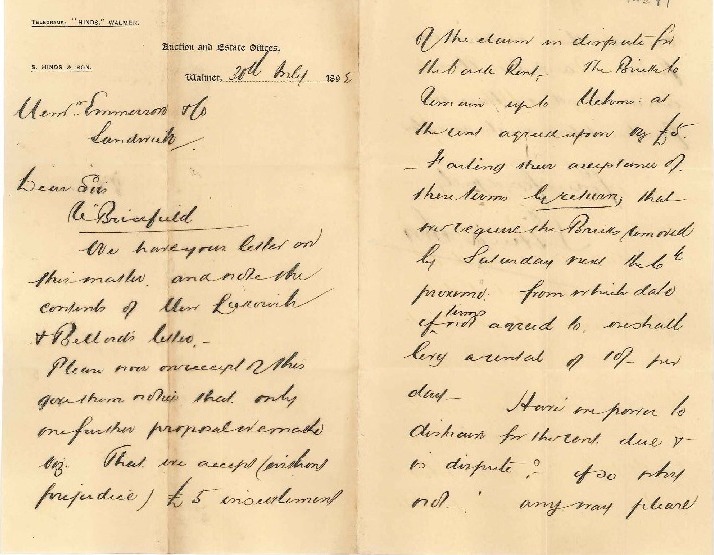 TELEGRAMS, "HINDS," WALMER.
Auction and Estate Offices,
S. HINDS & SON.
Walmer, 30th July 189
Messrs Emmerson & Co
Sandwich
Dear Sirs
Re Brickfield
We have your letter on
this matter and note the
contents of Messrs
& letter.
Please now on receipt of this
give them notice that only
one further proposal we make
viz. That we accept (without
prejudice) £5 in settlement
of the claim in dispute for
the back Rent, The Bricks to
remain up to at
the rent agreed upon viz £5
- Failing their acceptance of
these terms by return, that
we require the Bricks removed
by Saturday next the 6th
proximo. from which date
if terms not agreed to, we shall
levy a rental of 10/- per
day - Have we power to
distrain for the rent due &
in dispute? if so why
not! any way please